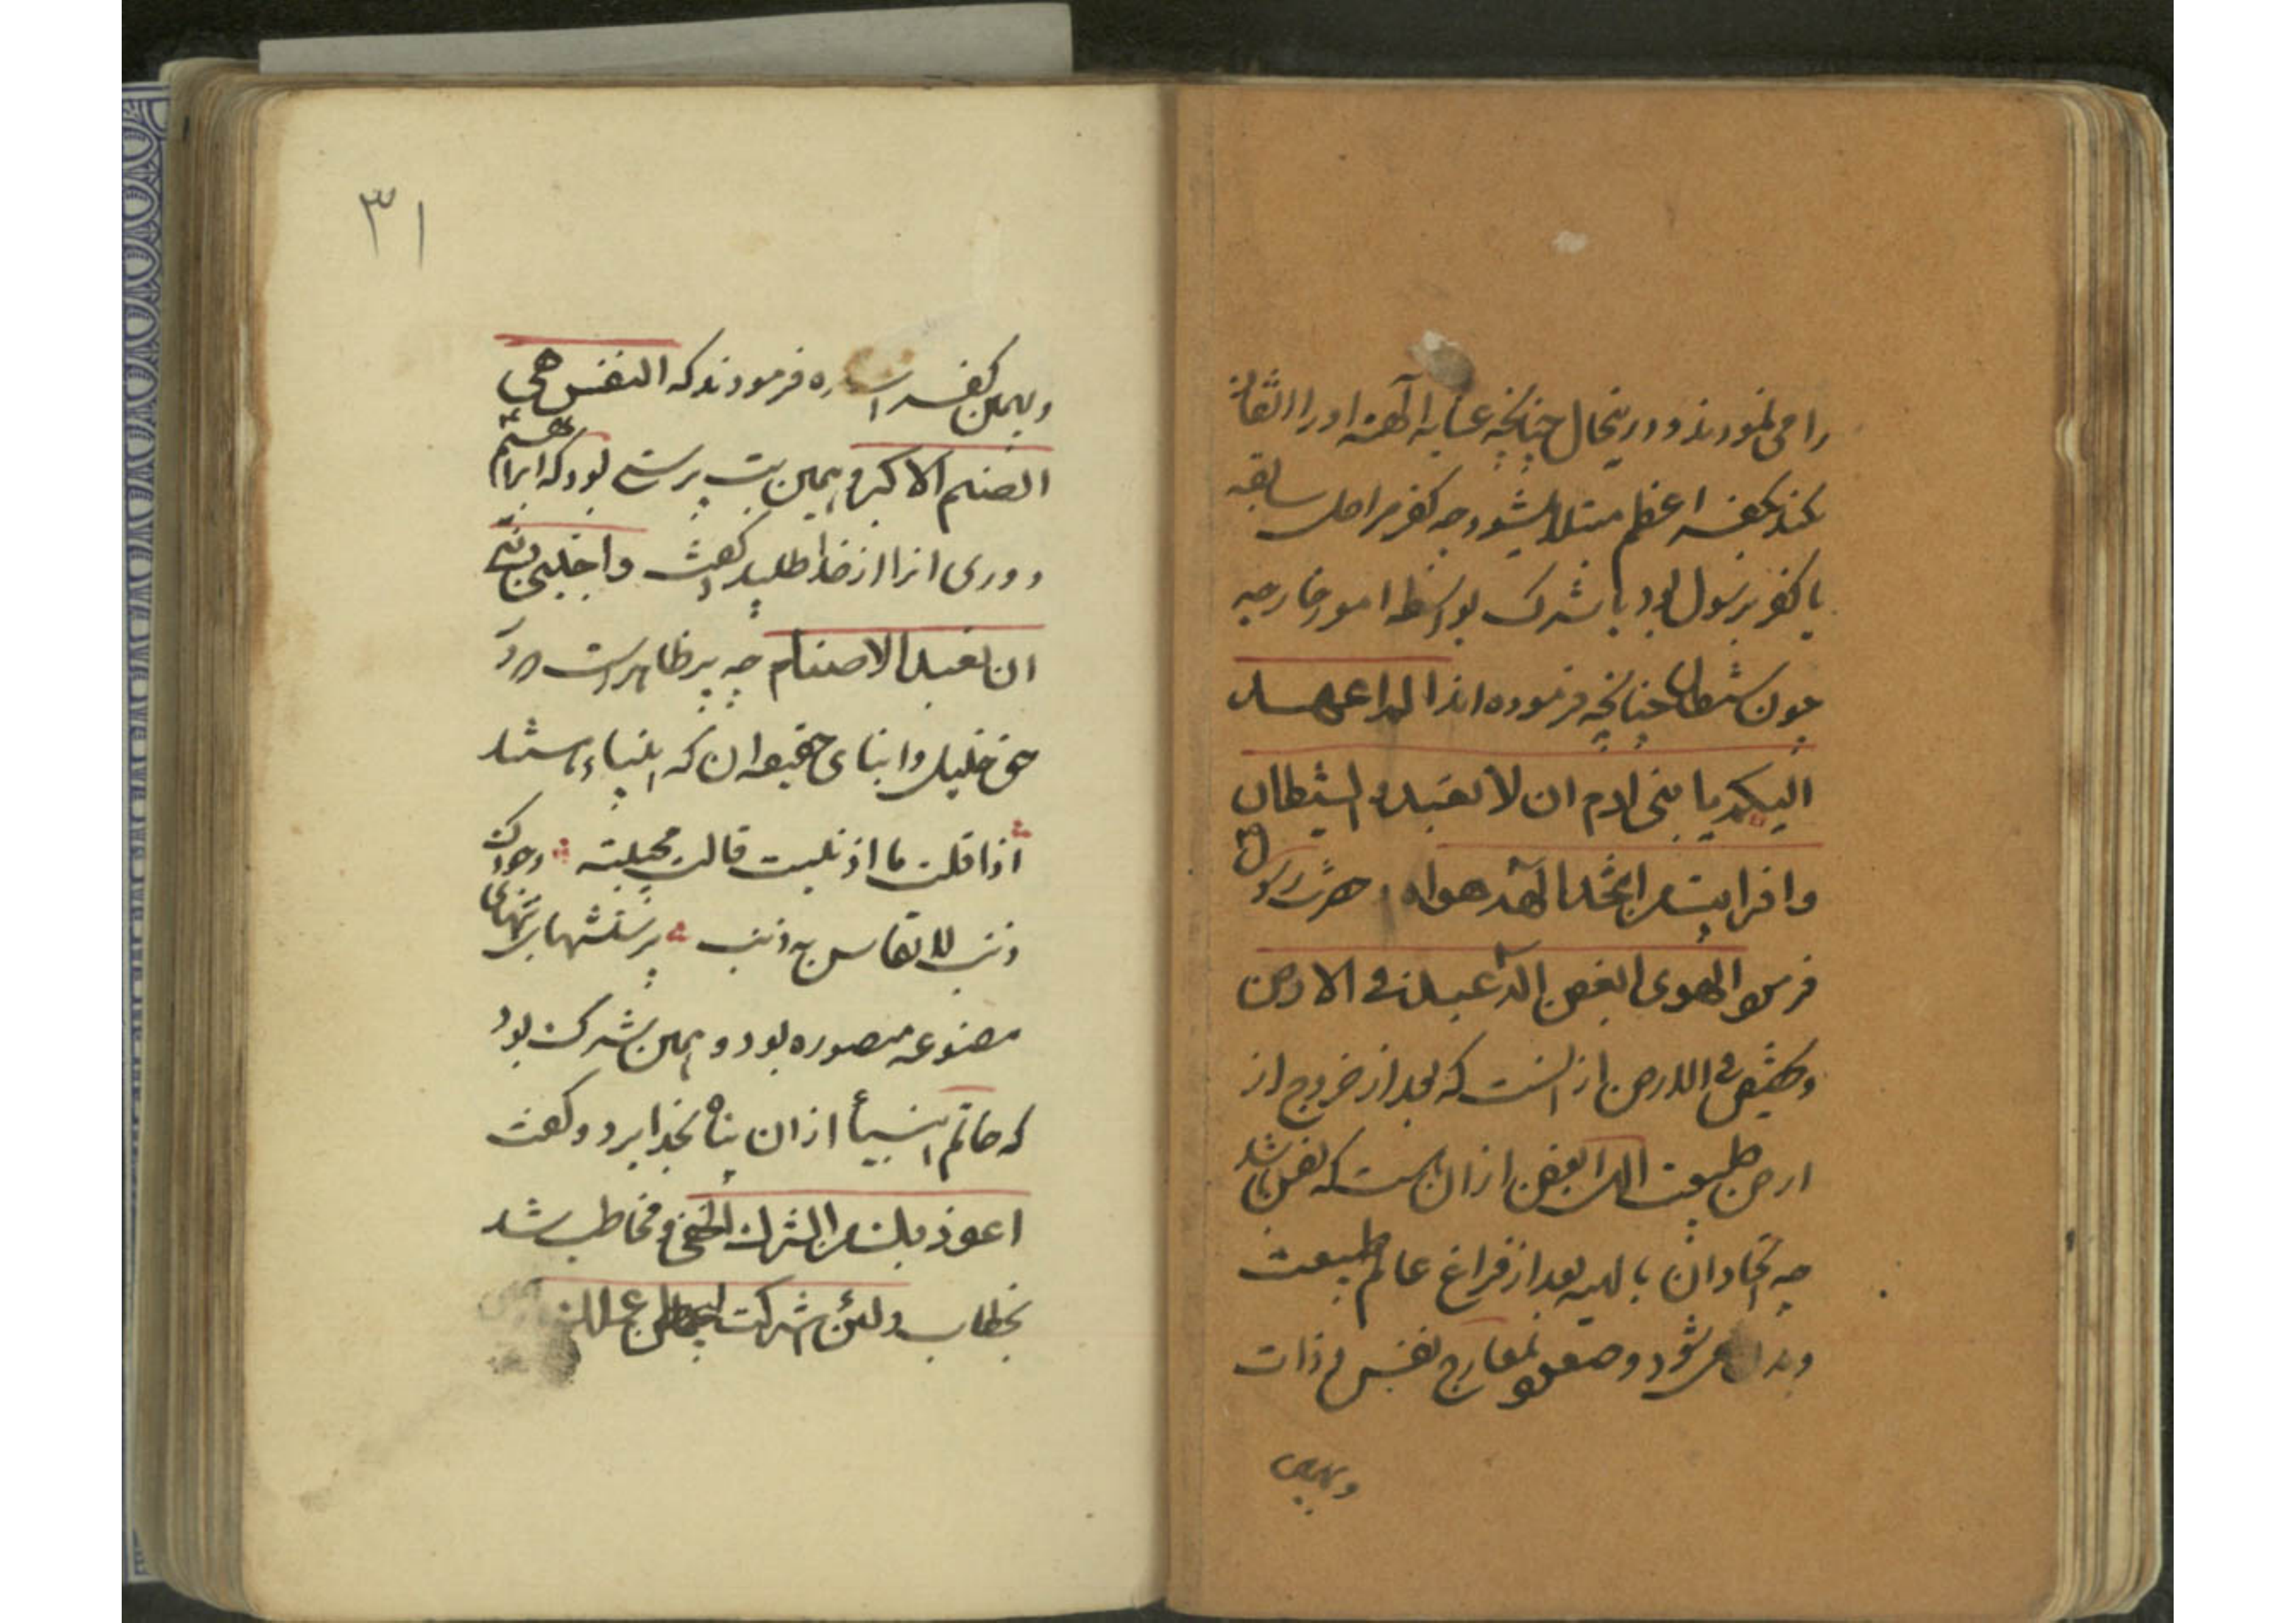 را می نمودند و درینحال چنانچه عنایه الهیه او را التفات
نکند بکفر اعظم مبتلا میشود چه کفر مراحل سابقه
یا کفر برسول بود یا شرک بواسطه امور خارجه
چون شیطان چنانچه فرموده اند الم اعهد
الیکم یا بنی ادم ان لا تعبدوا الشیطان
و افرایت من اتخذ الهه هواه حضرت رسول
فرمود الهوی ابغض اله عبد فی الارض
و فی الارض از انست که بعد از خروج از
ارض طبیعت اله ابغض از آن هست که نفس باشد
چه اتخاد آن بالهیه بعد از فراغ عالم طبیعت
می شود و صعود بمعارج نفس و ذات
و بهمین
و بهمین کفر اشاره فرمودند که النفس هی
الصنم الاکبر و همین بت پرستی بود که ابراهیم
دوری انرا از خدا طلبید گفت و اجنبنی و بنی
ان نعبد الاصنام چه پر ظاهر است در
حق خلیل و ابنای حقیقه ان که انبیاء باشند
اذا قلت ما اذنبت قالت مجیبته وجودک
ذنب لا یقاس به ذنب پرستشهای بتهای
مصنوعه مصوره بود و همین شرک بود
که خاتم انبیا از ان پناه بخدا برد و گفت
اعوذ بک من الشرک الخفی و مخاطب شد
بخطاب و لئن اشرکت لیحبطن عملک
۳۱